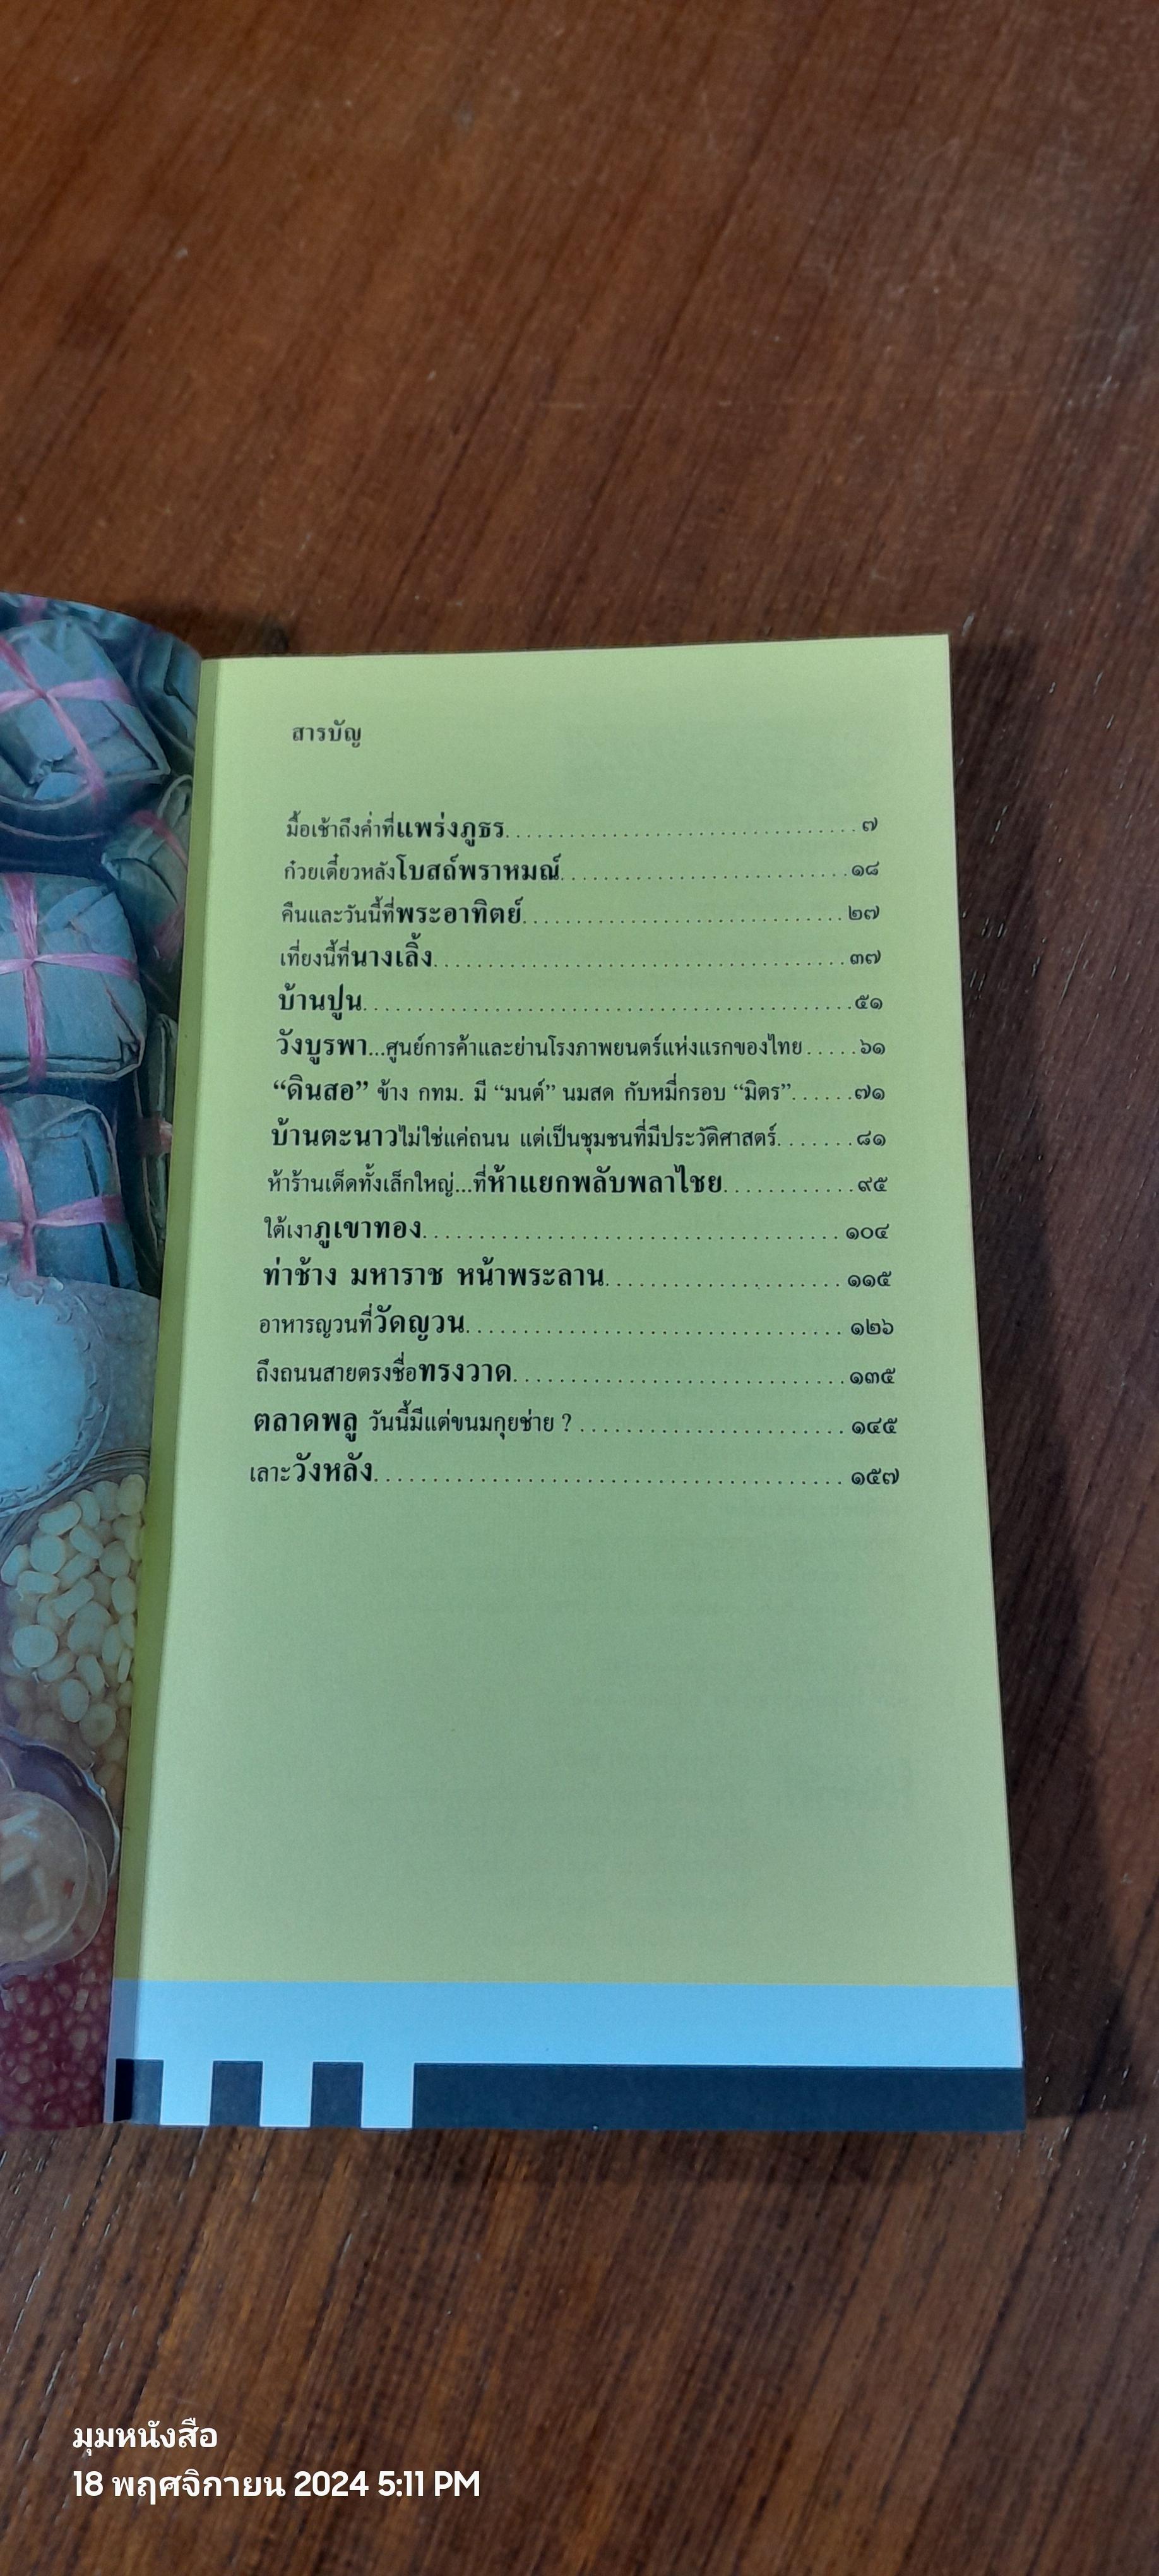 สารบัญ
มื้อเช้าถึงค่ำที่แพร่งภูธร................................๗
ก๋วยเตี๋ยวหลังโบสถ์พราหมณ์...........................๑๘
คืนและวันนี้ที่พระอาทิตย์..............................๒๗
เที่ยงนี้ที่นางเลิ้ง......................................๓๗
บ้านปูน.............................................๕๑
วังบูรพา...ศูนย์การค้าและย่านโรงภาพยนตร์แห่งแรกของไทย.....๖๑
“ดินสอ” ข้าง กทม. มี “มนต์” นมสด กับหมี่กรอบ “มิตร”......๗๑
บ้านตะนาวไม่ใช่แค่ถนน แต่เป็นชุมชนที่มีประวัติศาสตร์.......๘๑
ห้าร้านเด็ดทั้งเล็กใหญ่...ที่ห้าแยกพลับพลาไชย............๙๕
ใต้เงาภูเขาทอง.....................................๑๐๔
ท่าช้าง มหาราช หน้าพระลาน.....................๑๑๕
อาหารญวนที่วัดญวน................................๑๒๖
ถึงถนนสายตรงชื่อทรงวาด............................๑๓๕
ตลาดพลู วันนี้มีแต่ขนมกุยช่าย ?.......................๑๔๕
เลาะวังหลัง........................................๑๕๗
มุมหนังสือ
18 พฤศจิกายน 2024 5:11 PM